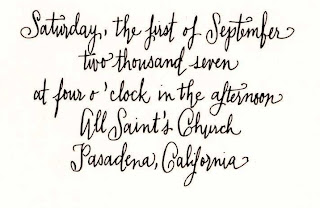 Saturday, the first of September
two thousand seven
at four o'clock in the afternoon
All Saint's Church
Pasadena, California